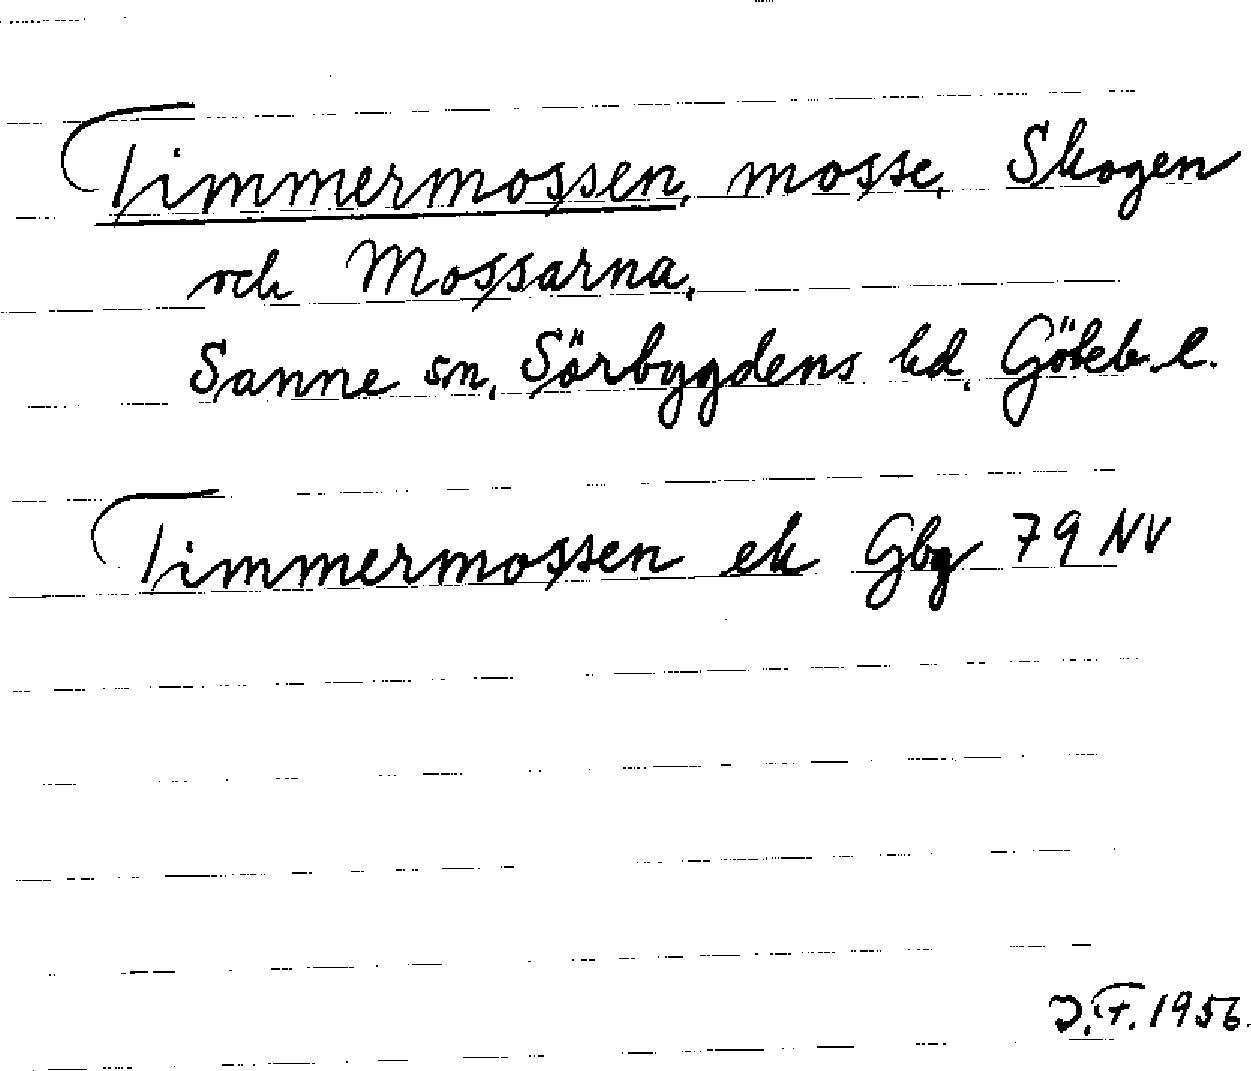 Timmermossen, mosse, Skogen
och Mossarna,
Sanne sn, Sörbygdens hd, Göteb. l.
Timmermossen ek Gbg 79 NV
J.F. 1956.